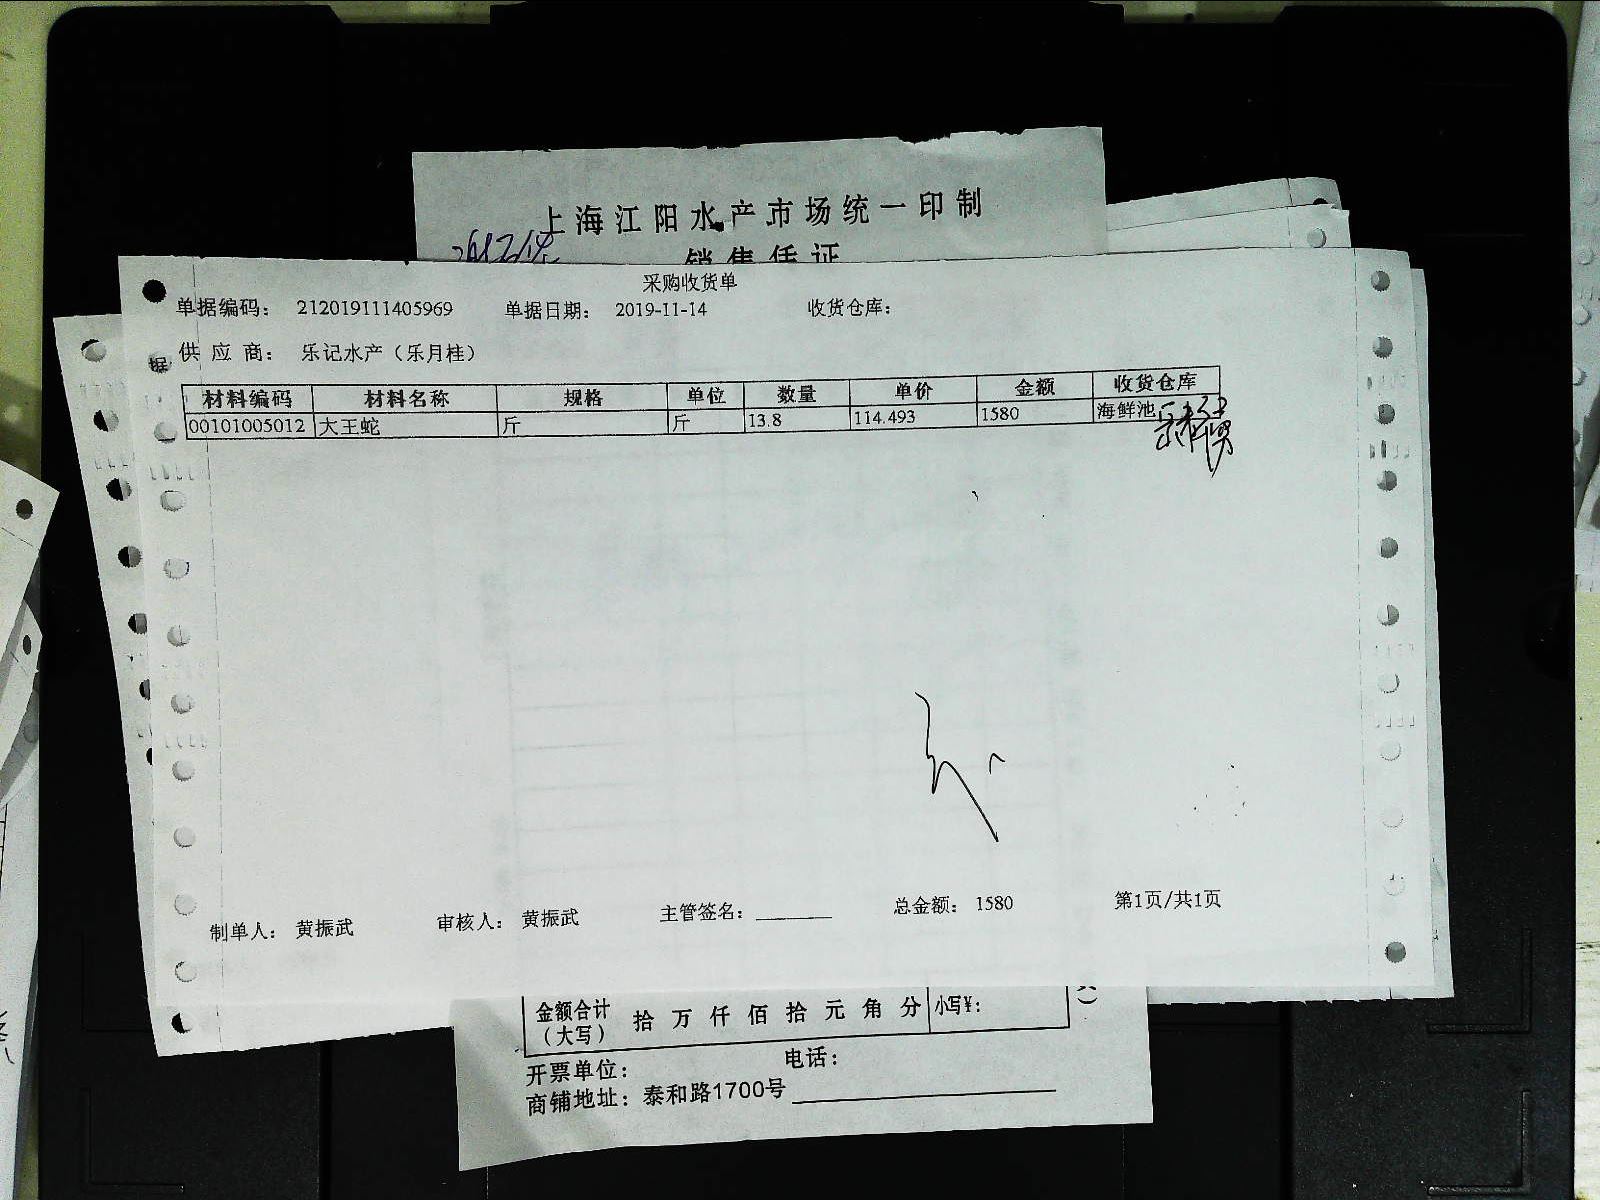 上海江阳水产市场统一印制
销售凭证
采购收货单
单据编码： 212019111405969 单据日期： 2019-11-14 收货仓库：
据
供 应 商： 乐记水产（乐月桂）
材料编码 材料名称 规格 单位 数量 单价 金额 收货仓库
00101005012 大王蛇 斤 斤 13.8 114.493 1580 海鲜池
制单人： 黄振武 审核人： 黄振武 主管签名： 总金额： 1580 第1页/共1页
金额合计（大写） 拾 万 仟 佰 拾 元 角 分 小写¥：
开票单位： 电话：
商铺地址：泰和路1700号